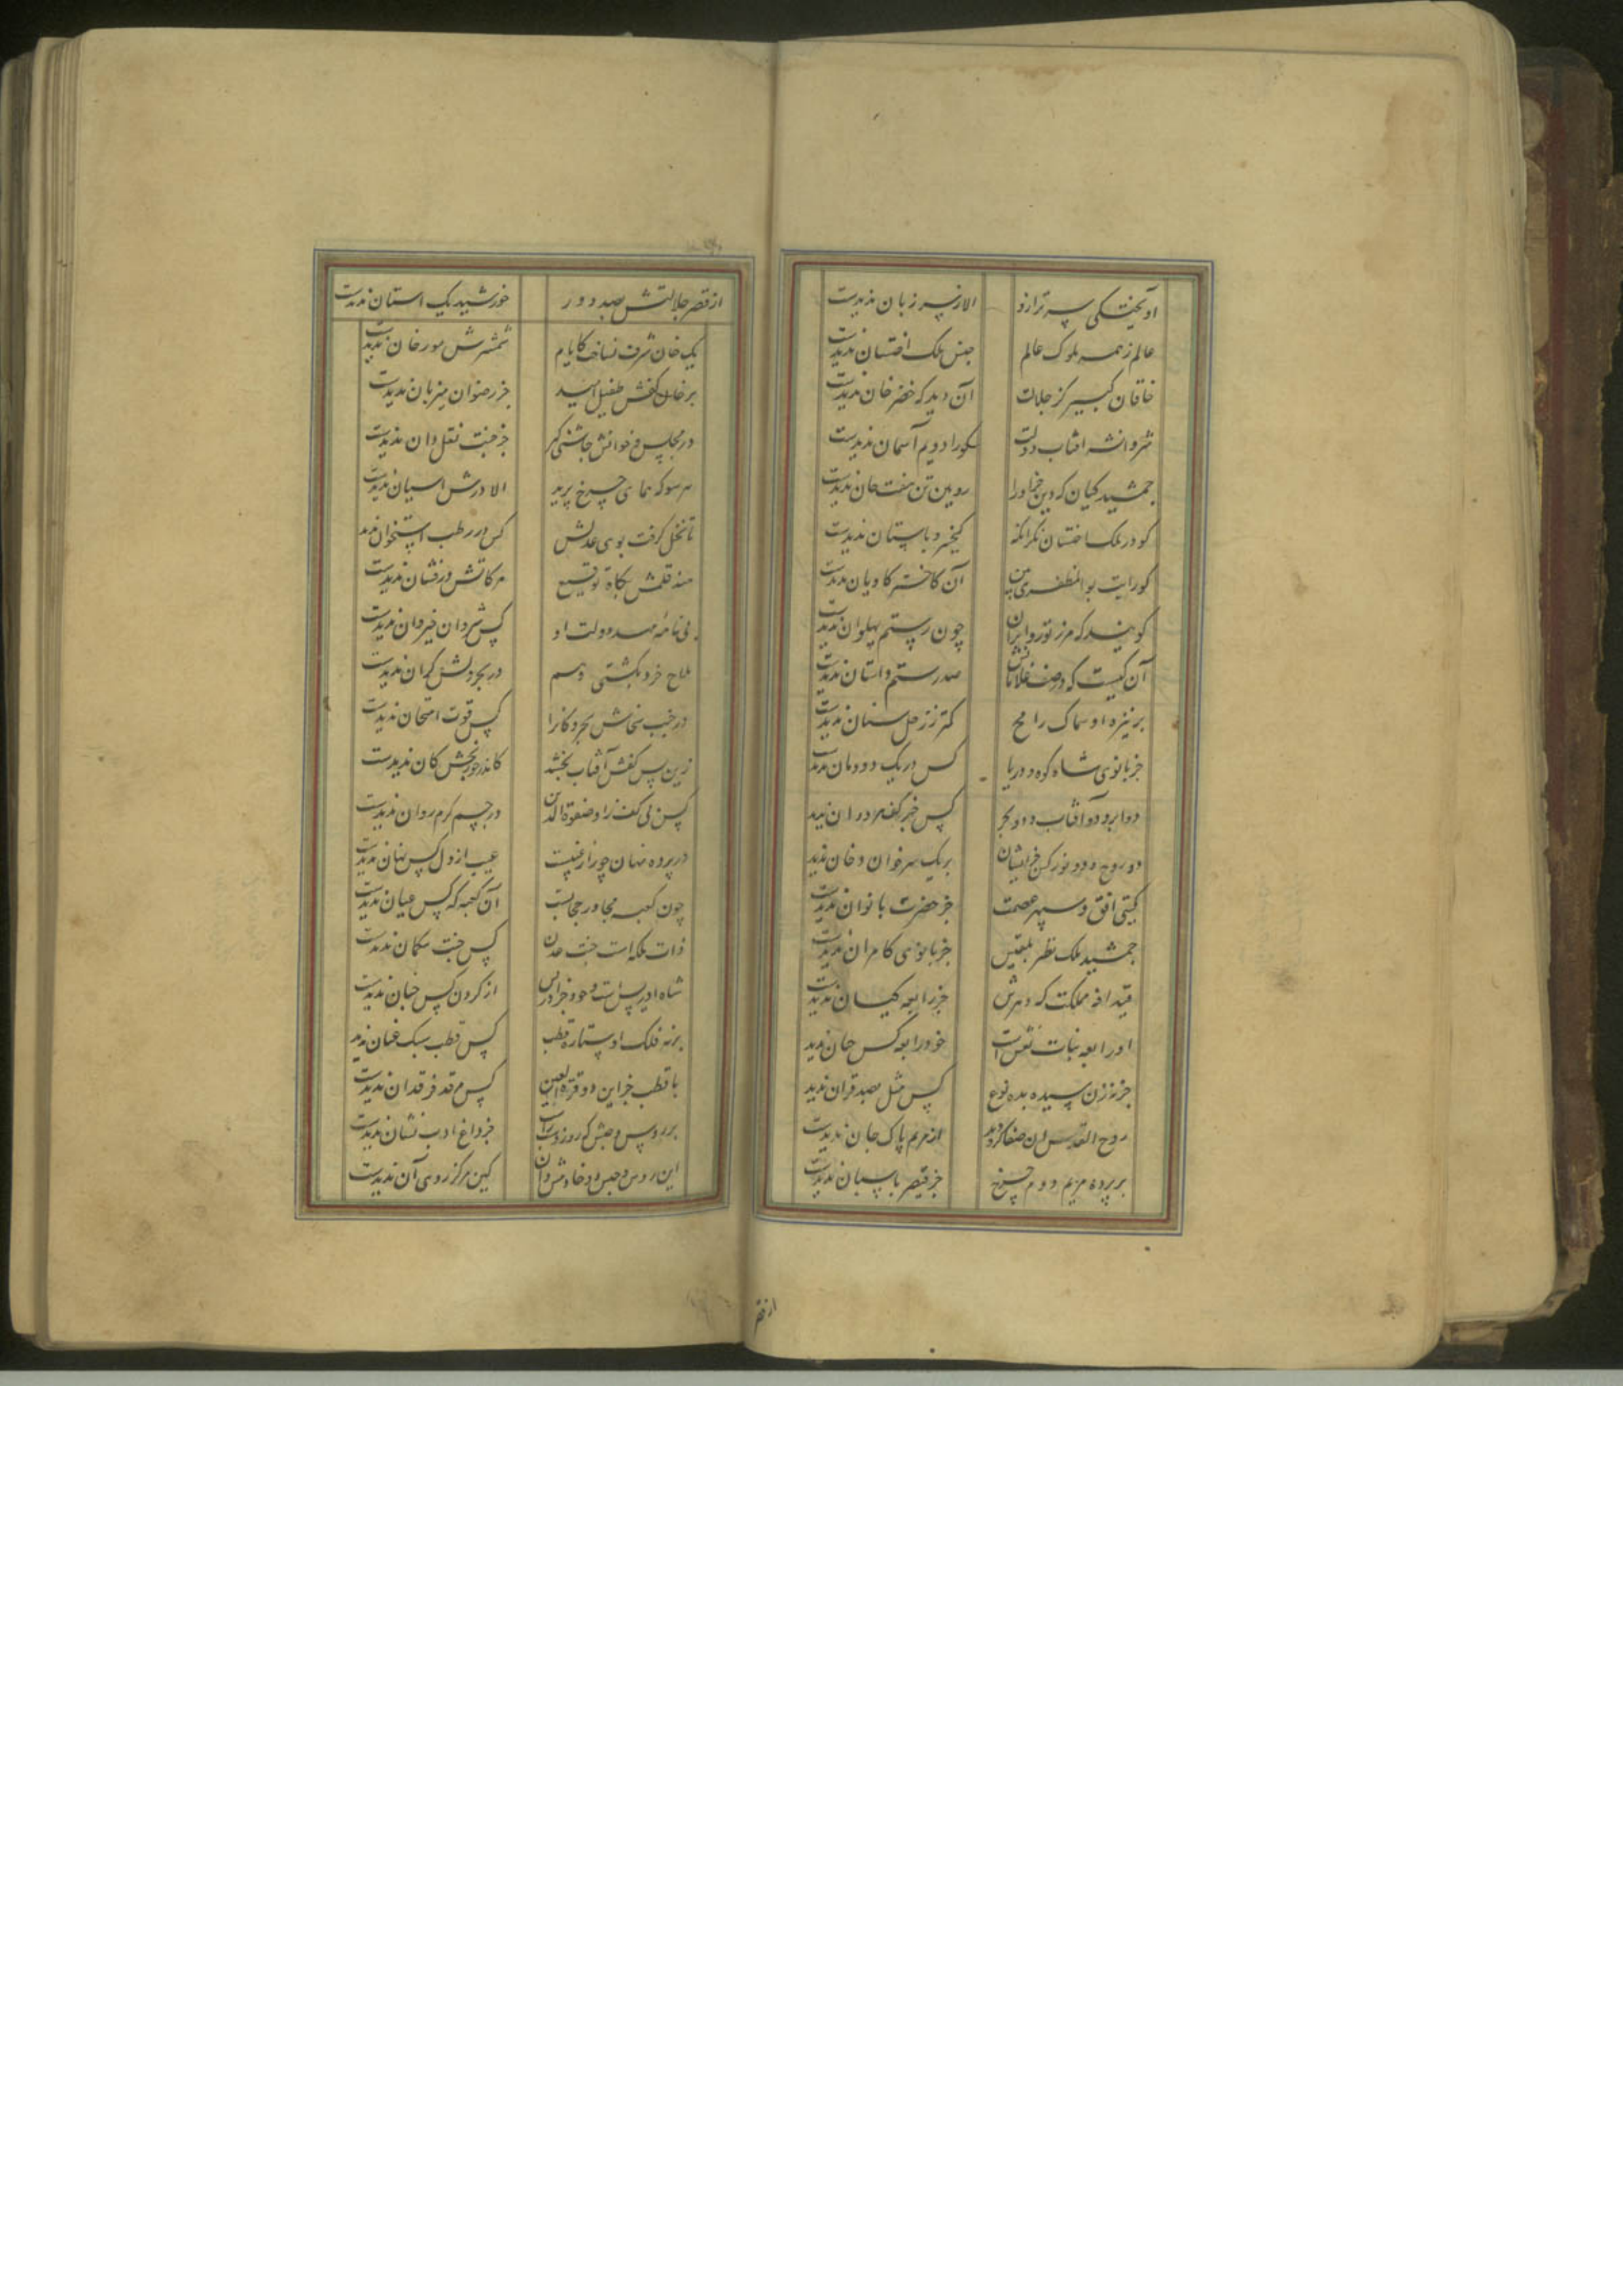 آویختگی سر ترازو الا ز سر زبان ندیدست
عالم ز همه ملوک عالم جنس ملک اخستان ندیدست
خاقان کبیر کز جلالت آن دید که خضرخان ندیدست
شروانشه آفتاب دولت کورا دویم آسمان ندیدست
جمشید کیان که دین جز او را رویین تن هفت خان ندیدست
کو در ملک اخستان نگر آنکه کیخسرو باستان ندیدست
کو رایت بوالمظفری بین آن کاختر کاویان ندیدست
گویند که مرز تور و ایران چون رستم پهلوان ندیدست
آن کیست که در صف غلامانش صد رستم داستان ندیدست
بر نیزه او سماک رامح کمتر ز زحل سنان ندیدست
جز بانوی شاه کوه و دریا کس در یک دودمان ندید
دو ابر و دو آفتاب و دو بحر کس جز کف مردران ندید
دو روح و دو نور کس جز ایشان بر یک سر خوان و خان ندید
گیتی افق و سپهر عصمت جز حضرت بانوان ندیدست
جمشید ملک نظر بلقیس جز بانوی کامران ندیدست
قیدافه مملکت که دهرش جز رابعه کیان ندیدست
او رابعه بنات نعش است خود رابعه کس چنان ندید
جز نه زن سیده بده نوع کس مثل بصد قران ندید
روح القدس آن صفا کزو دید از مریم پاک جان ندیدست
بر پرده مریم دوم چرخ جز قیصر پاسبان ندیدست
از قصر
از قصر جلالتش بصد دور خورشید یک آستان ندیدست
یک خان شرف نساخت کایام شمشیرش مورخان ندیدست
بر خان کفش طفیل امید جز رضوان میزبان ندیدست
در مجلس و خوانش چاشنی گیر جز جنت نقل‌دان ندیدست
هر سو که همای چرخ پرید الا درش آشیان ندیدست
تا نخل گرفت بوی عدلش کس در رطب استخوان ندید
هند قلمش بگاه توقیع هر کاتش درفشان ندیدست
بی نامه مهد دولت او کس شروان خیروان ندیدست
ملاح خرد بکشتی وهم در بحر دلش کران ندیدست
در جنب سخاش بحر و کان را کس قوت امتحان ندیدست
زین پس کفش آفتاب بخشد کاندر خور بخش کان ندیدست
کس بی کف راد صفوة الدین در جسم کرم روان ندیدست
در پرده نهان چو راز غیبست عیب از دل کس نهان ندیدست
چون کعبه مجاور حجابست آن کعبه که کس عیان ندیدست
ذات ملکه است جنت عدن کس جنت بیکمان ندیدست
شاه ادریس است و خود جز ادریس از کردن کس جنان ندیدست
بر نه فلک او ستاره قطب کس قطب سبک عنان ندید
با قطب جز این دو قرة العین کس مرقد فرقدان ندیدست
بر روس و حبش که روز و شب راست جز داغ ادب نشان ندیدست
این روس و حبش دو خادمش دان کین مرکز روی آن ندیدست